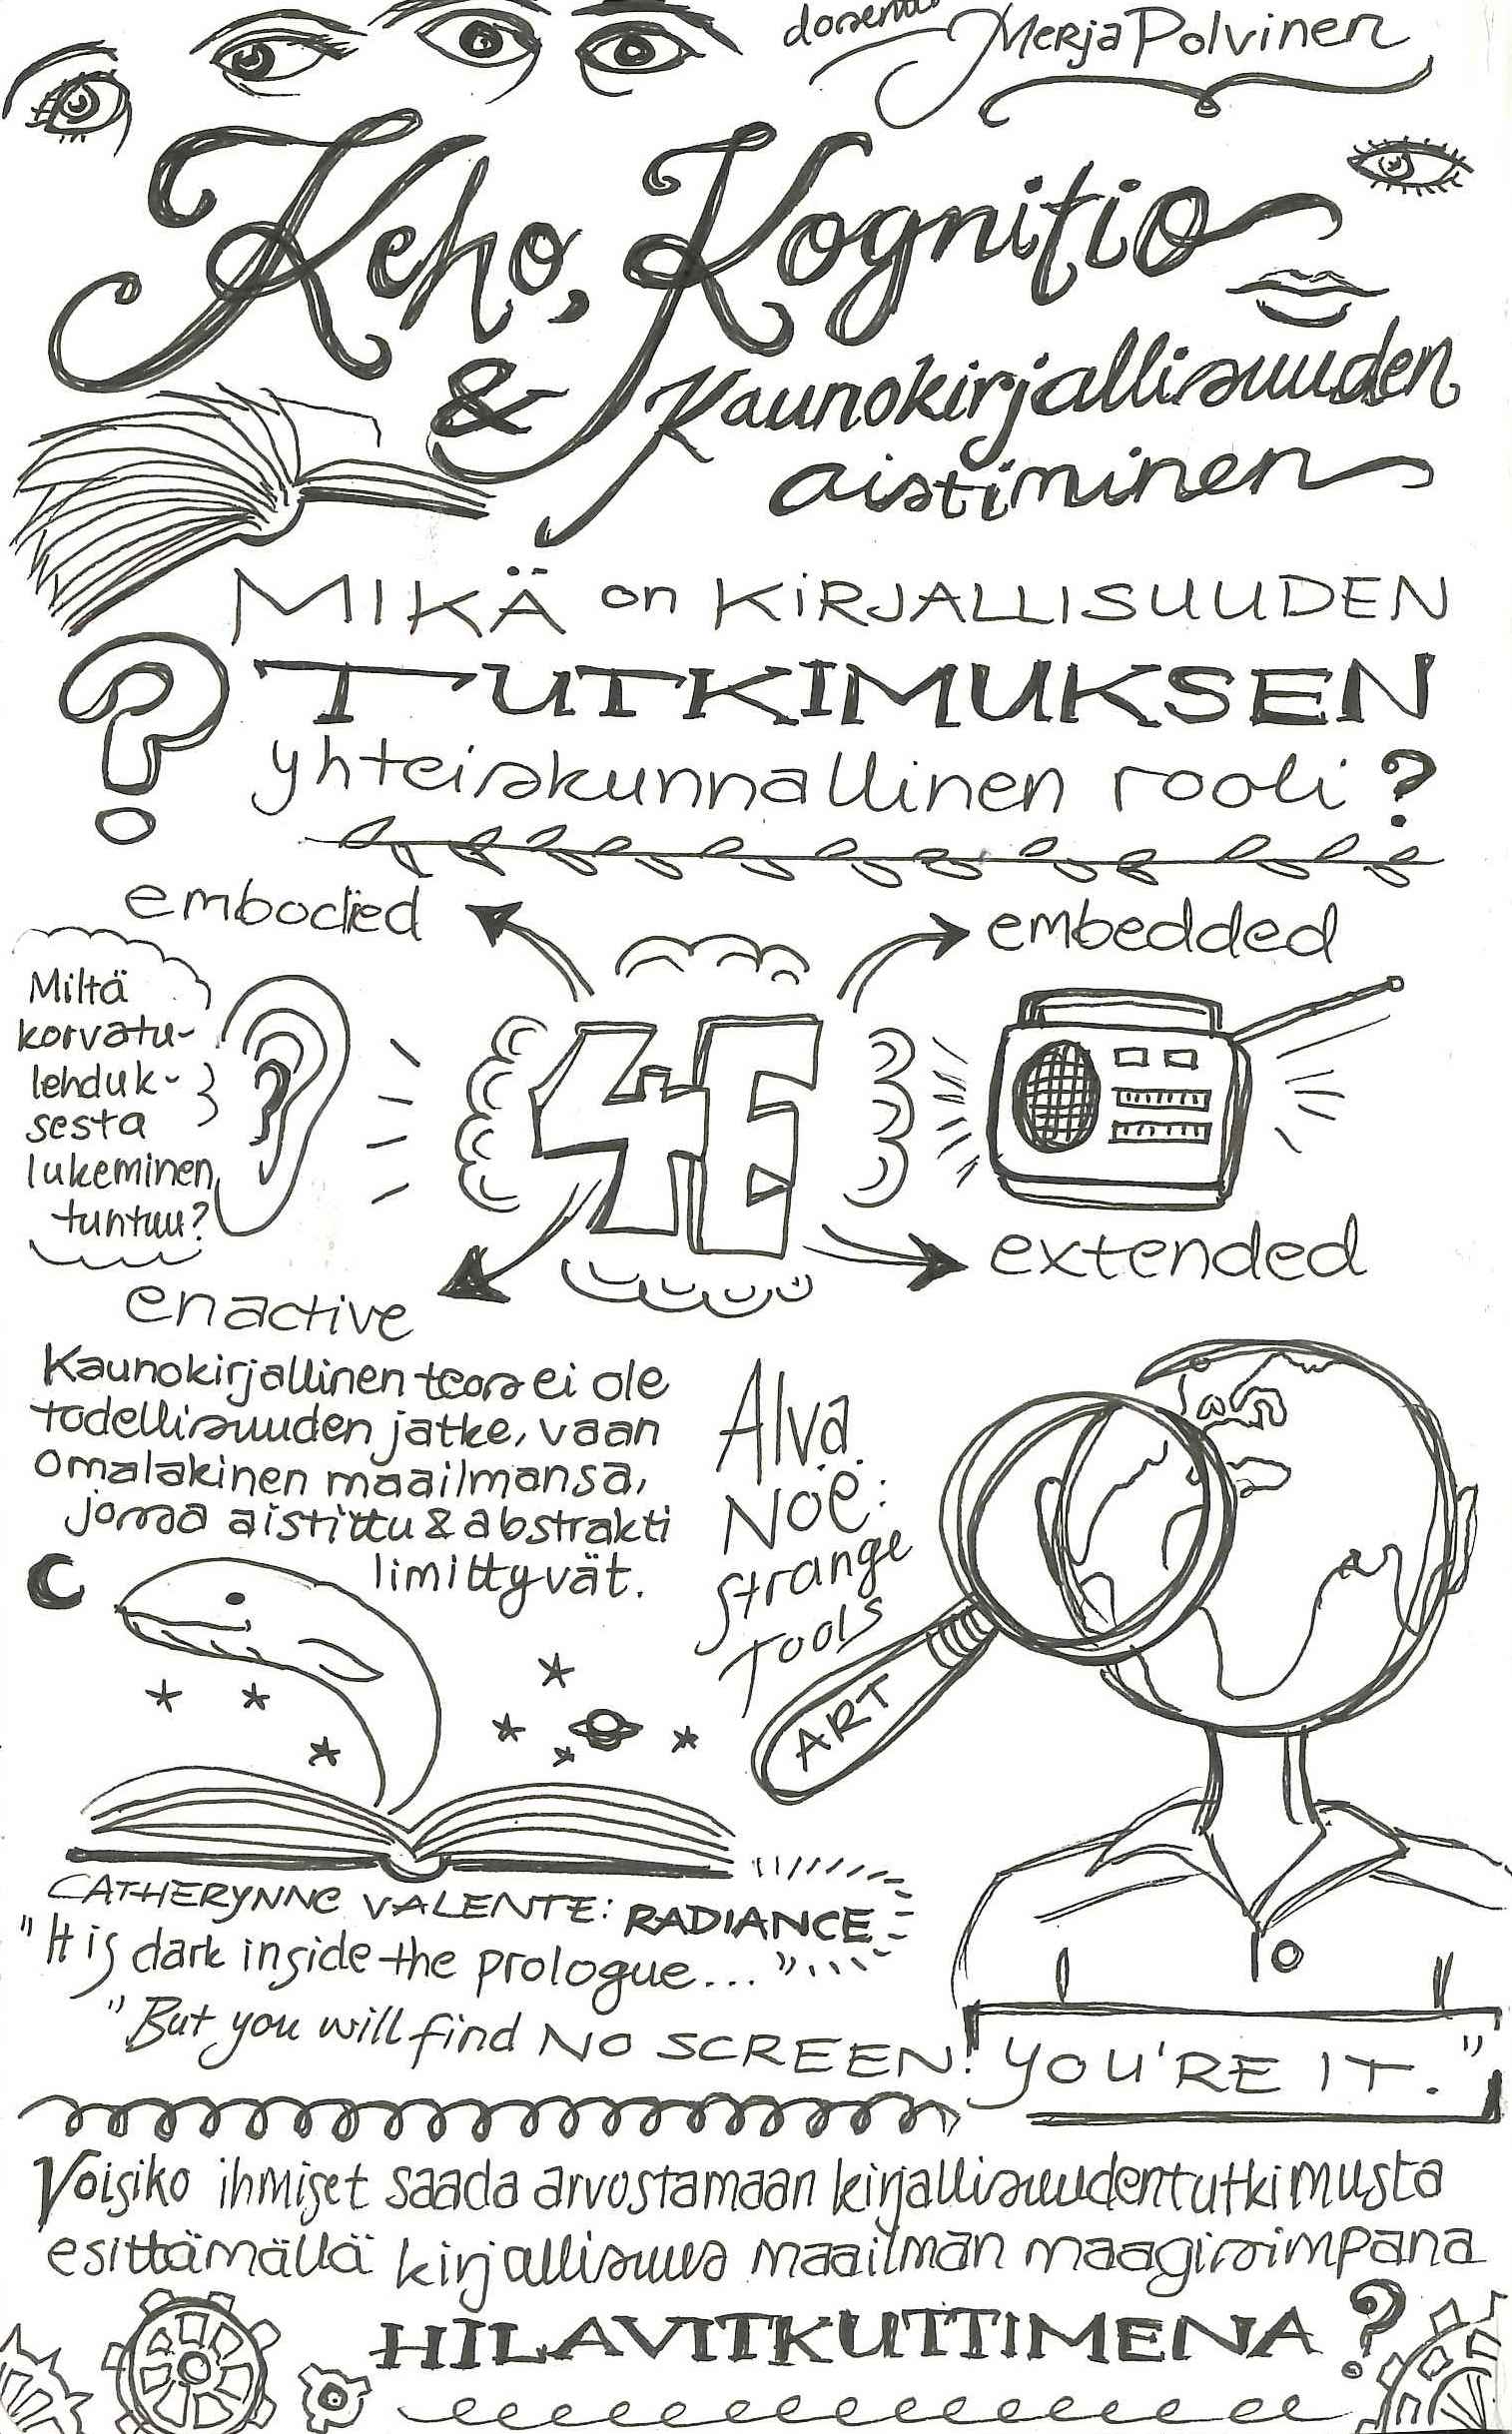 dosentti
Merja Polvinen
Keho, Kognitio
& Kaunokirjallisuuden
aistiminen
MIKÄ on KIRJALLISUUDEN
? TUTKIMUKSEN
yhteiskunnallinen rooli?
embodied
embedded
Miltä
korvatu-
lehduk-
sesta
lukeminen
tuntuu?
4E
enactive
extended
Kaunokirjallinen teos ei ole
todellisuuden jatke, vaan
omalakinen maailmansa,
jossa aistittu & abstrakti
limittyvät.
Alva
Noë:
Strange
Tools
ART
CATHERYNNE VALENTE: RADIANCE
"It is dark inside the prologue..."
"But you will find NO SCREEN! YOU'RE IT."
Voisiko ihmiset saada arvostamaan kirjallisuudentutkimusta
esittämällä kirjallisuus maailman maagisimpana
HILAVITKUTTIMENA?